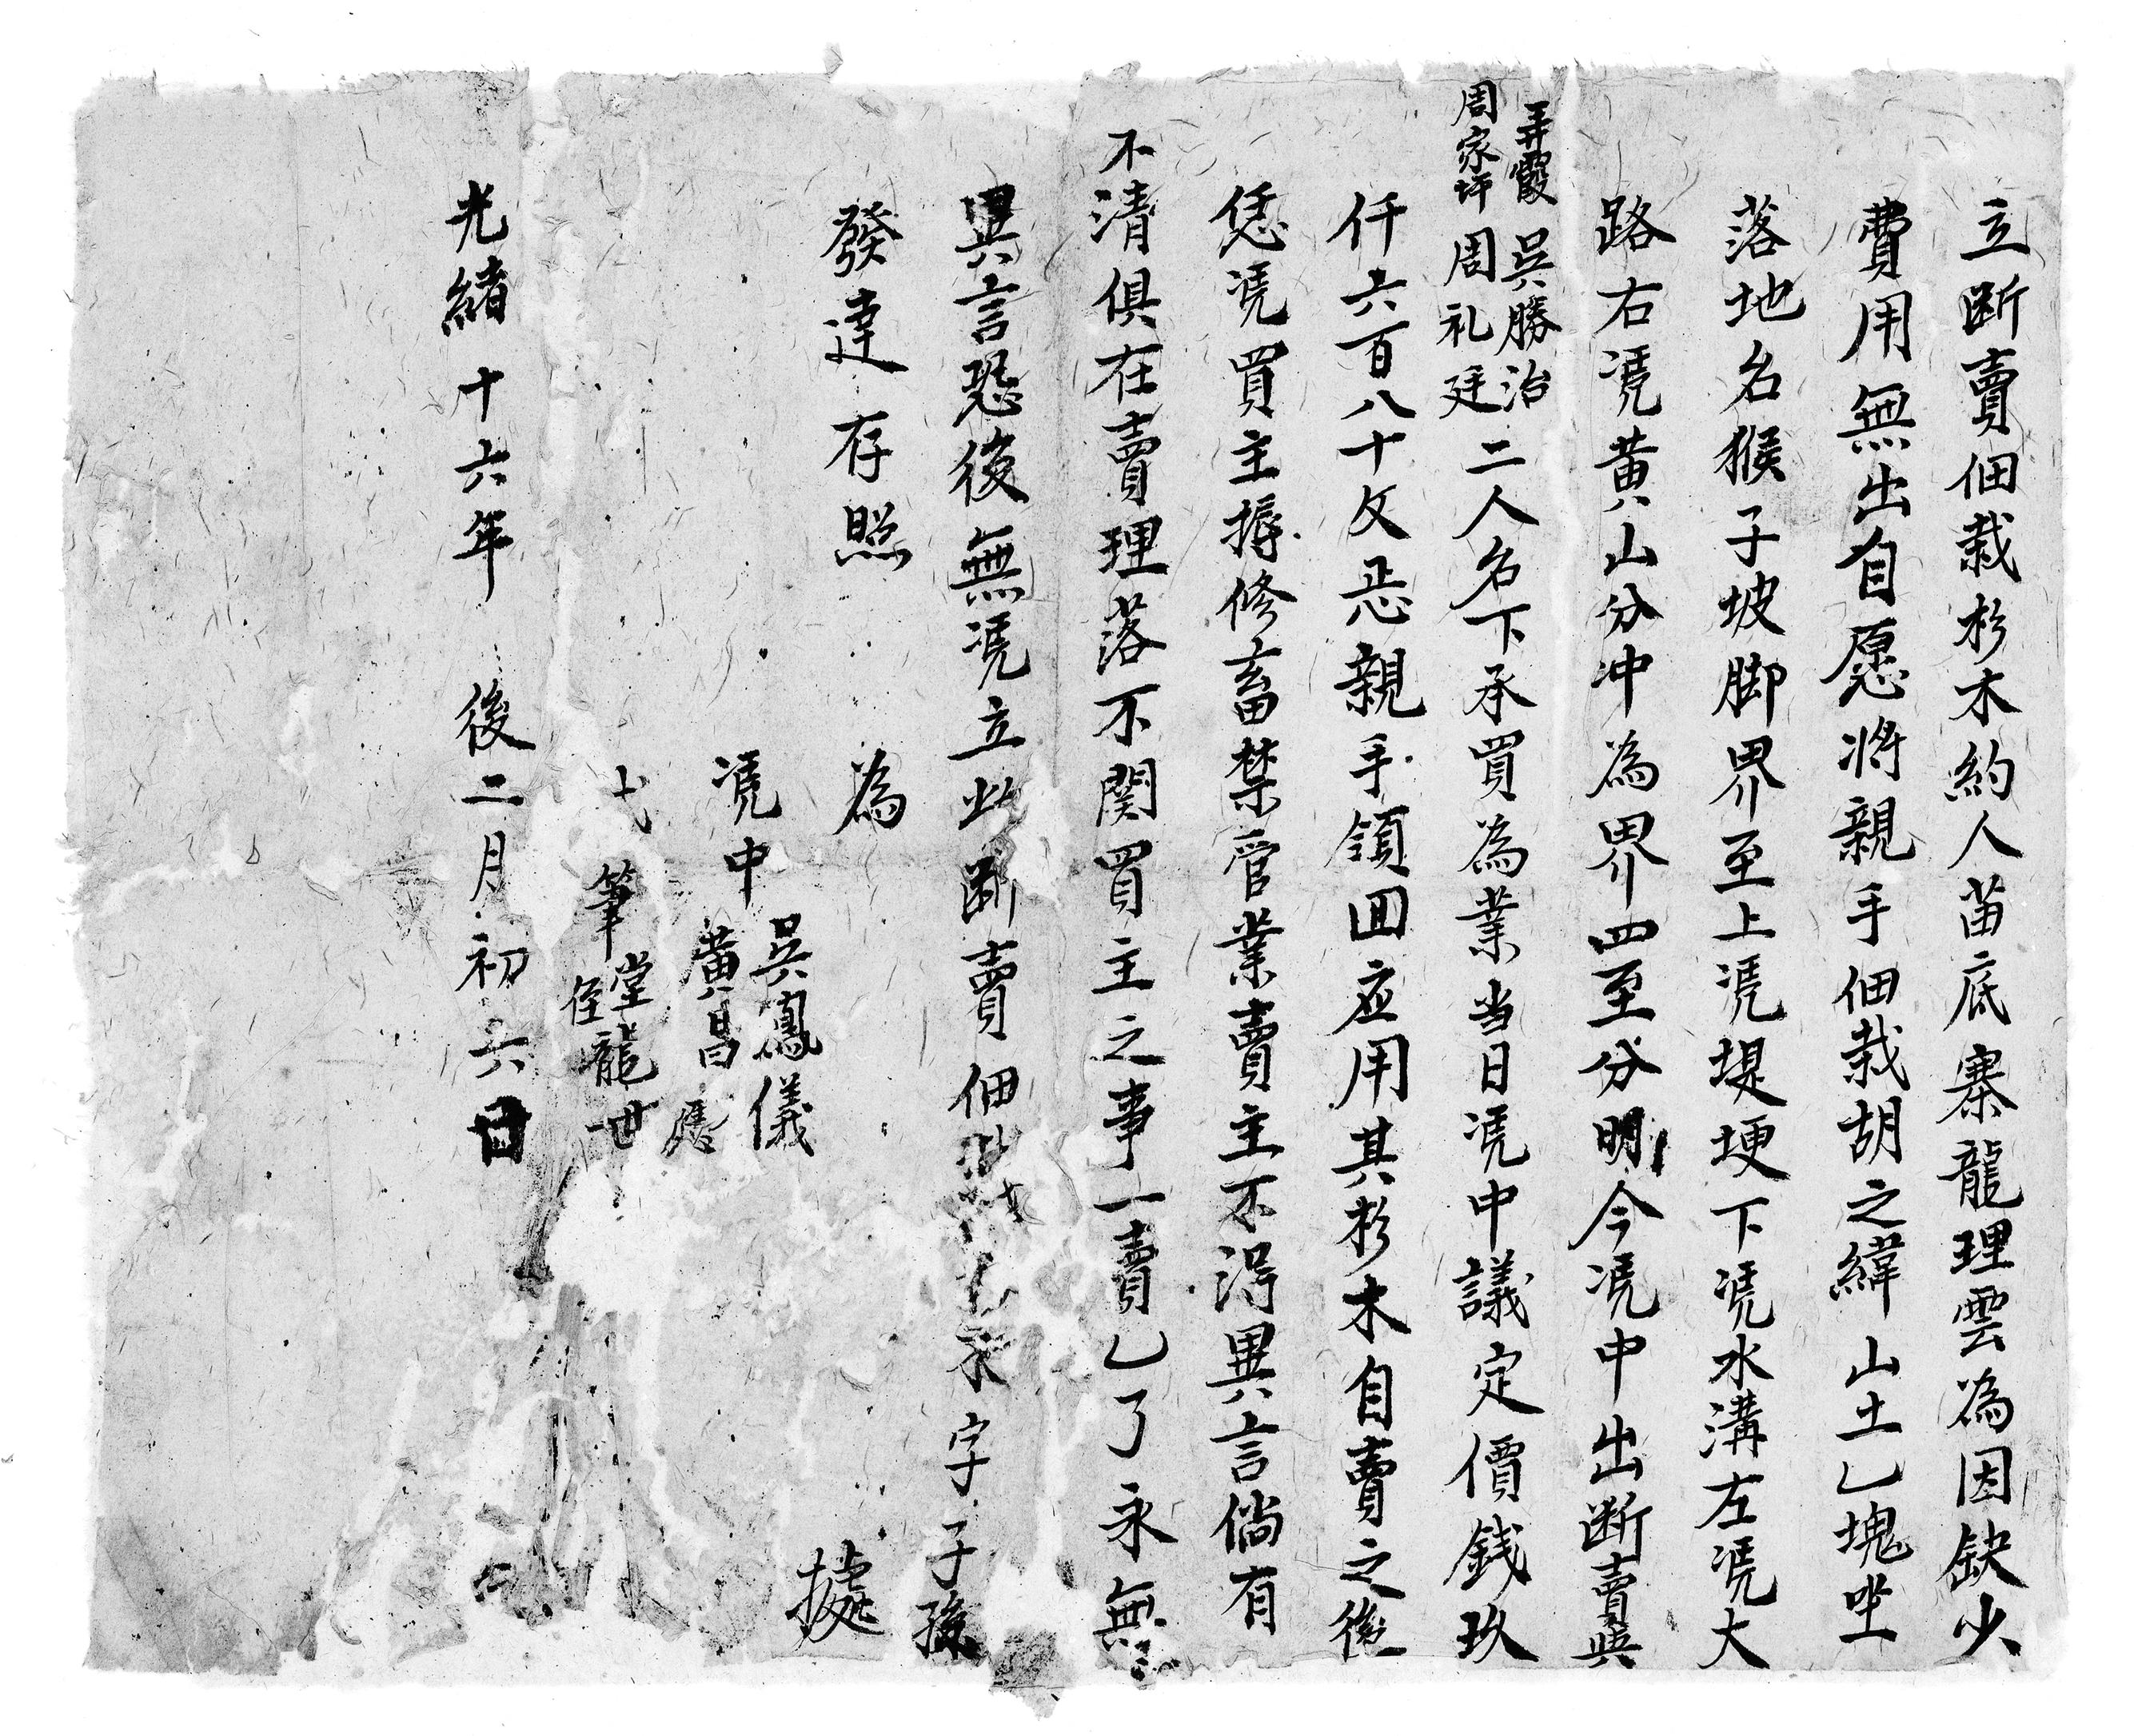 立断賣佃栽杉木約人苗底寨龍理雲為因缺少
費用無出自愿將親手佃栽胡之緯山土乙塊坐
落地名猴子坡脚界至上凴堤埂下凴水溝左凴大
路右凴黄山分冲為界四至分明今凴中出断賣與
弄霞吳勝治
周家坪周礼廷
二人名下承買為業当日凴中議定價錢玖
仟六百八十文忢親手領囬应用其杉木自賣之後
恁凴買主搙修畜禁管業賣主不淂異言倘有
不清俱在賣理落不関買主之事一賣乙了永無
異言恐後無凴立此断賣佃字子孫
發達存照為據
凴中
吳鳳儀
黄昌應
代筆堂侄龍世
光緒十六年後二月初六日